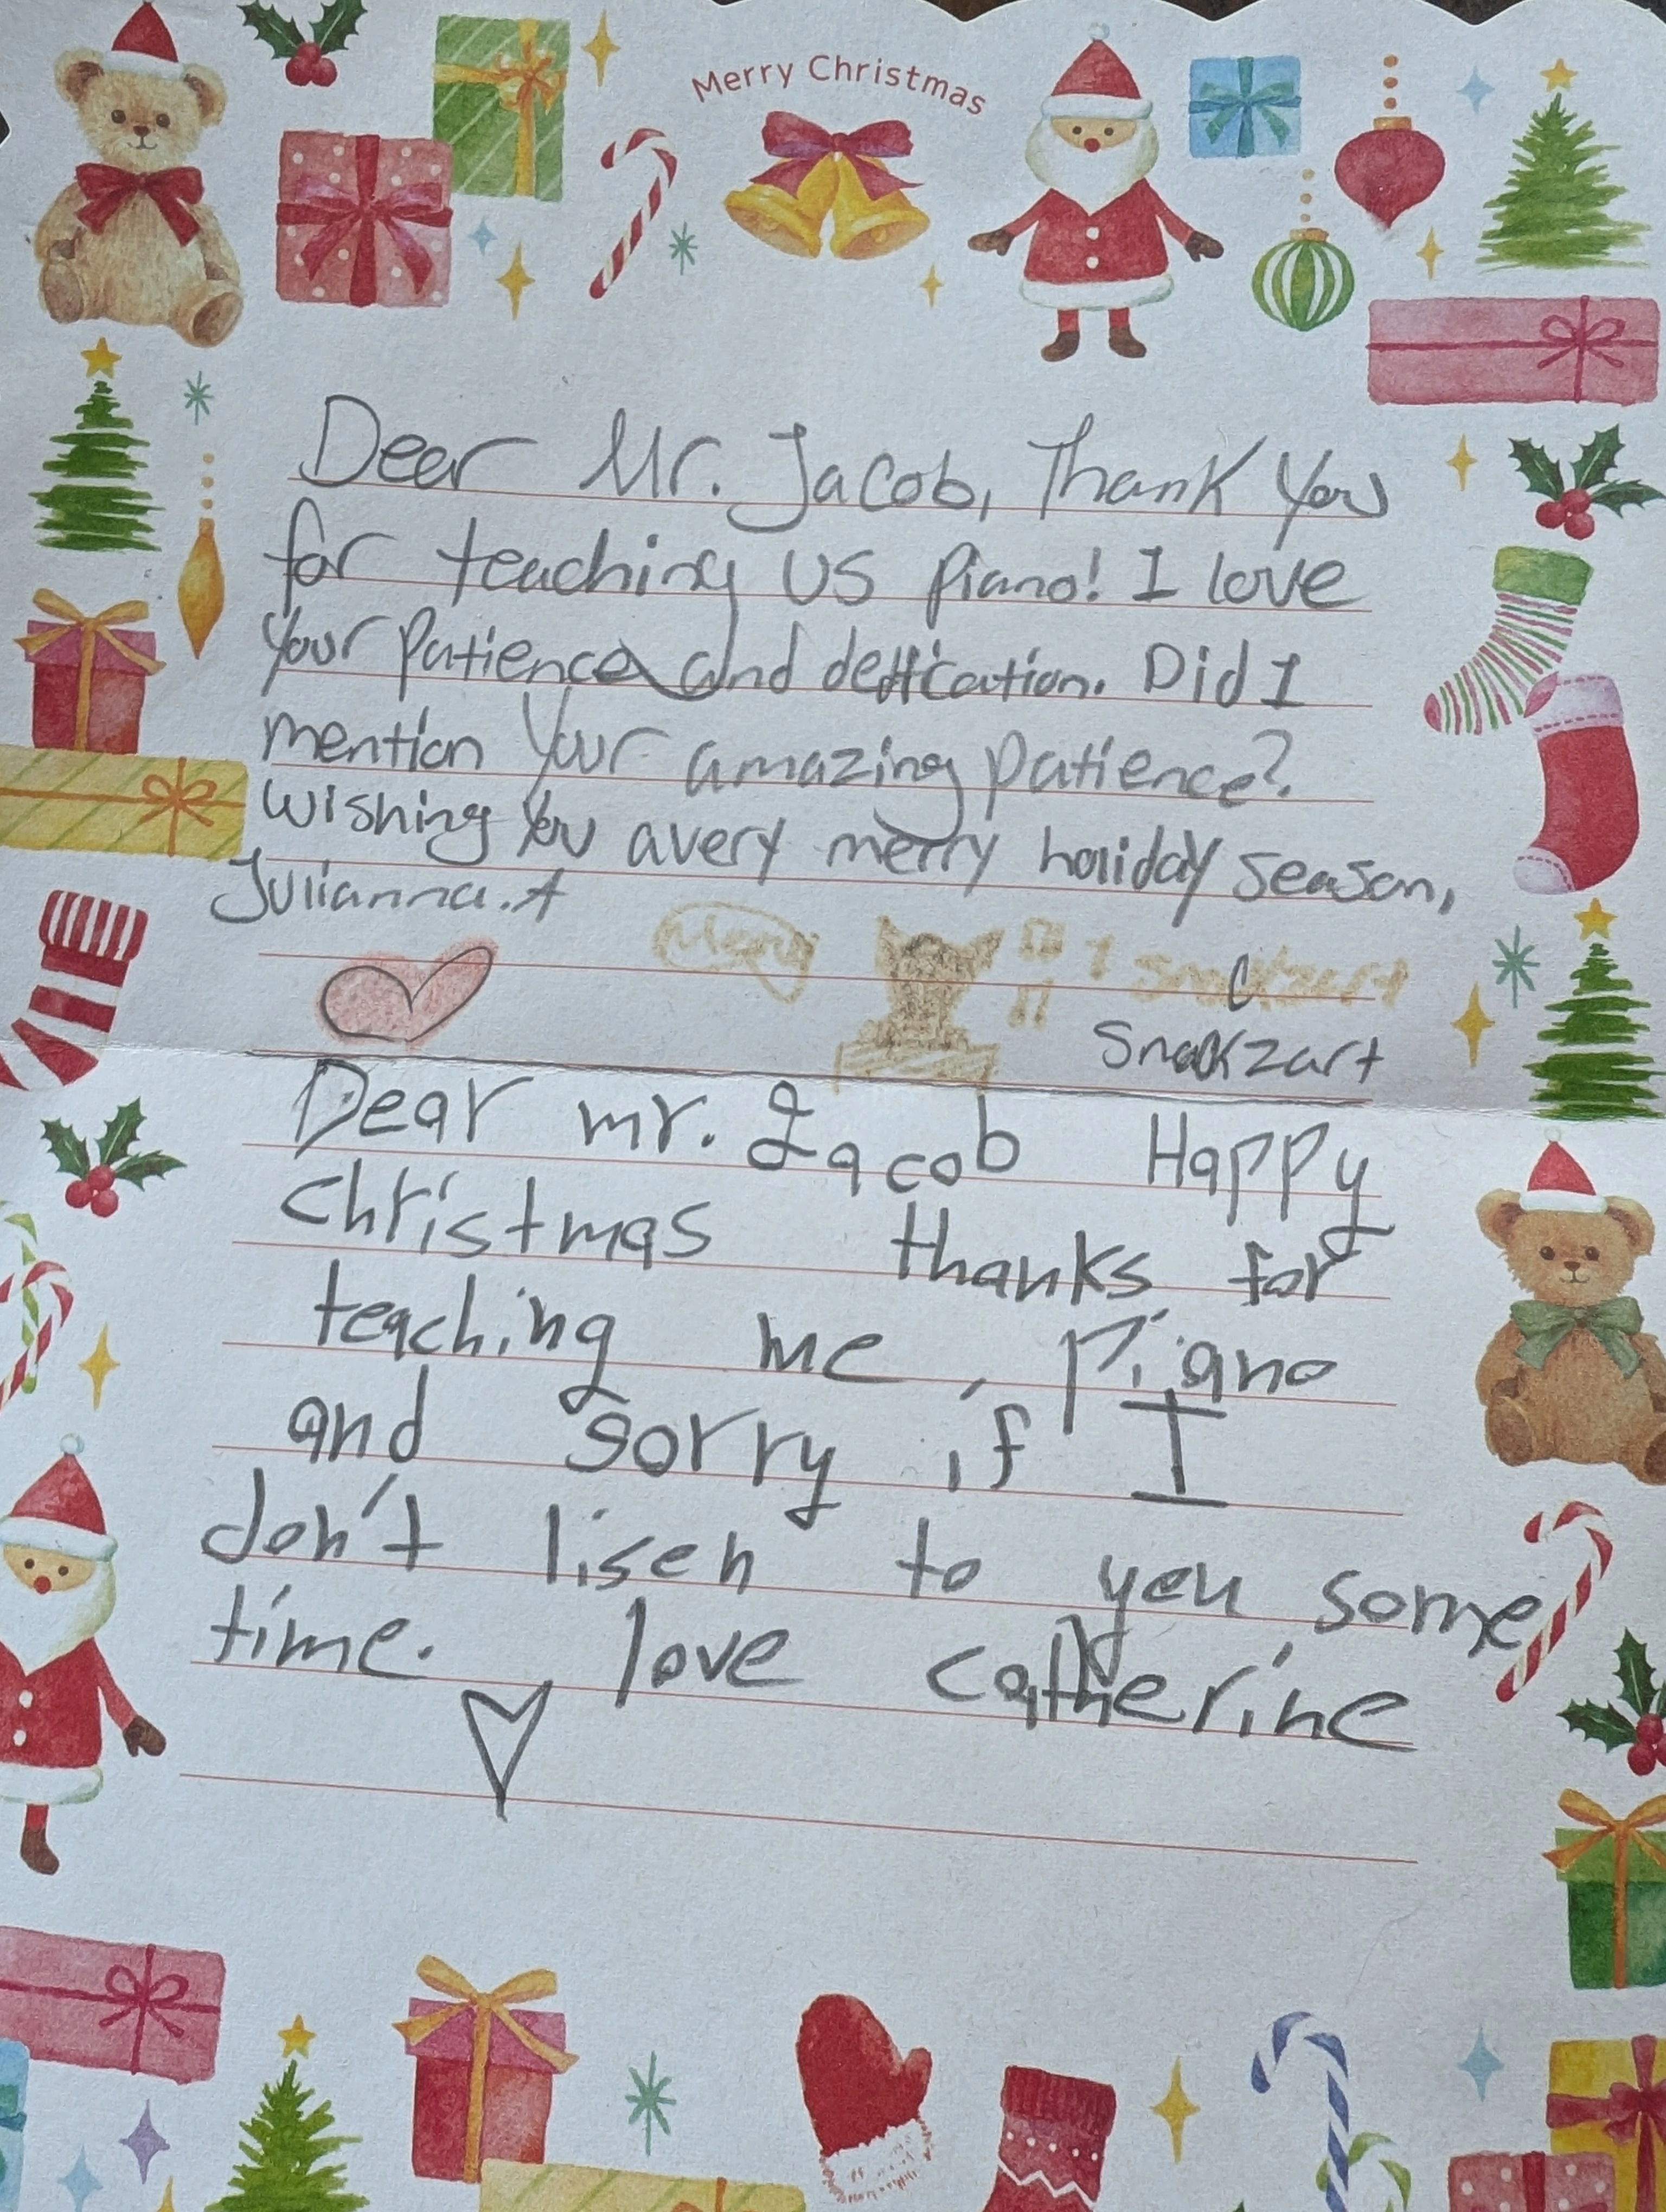 Merry Christmas
Dear Mr. Jacob, Thank You
for teaching us piano! I love
your patience and dedication. Did I
mention your amazing patience?
Wishing you a very merry holiday season,
Julianna.A
Meow
#1 Snackzart
Snackzart
Dear mr. Jacob Happy
christmas thanks for
teaching me piano
and sorry if I
don't lisen to you some
time. love catherine